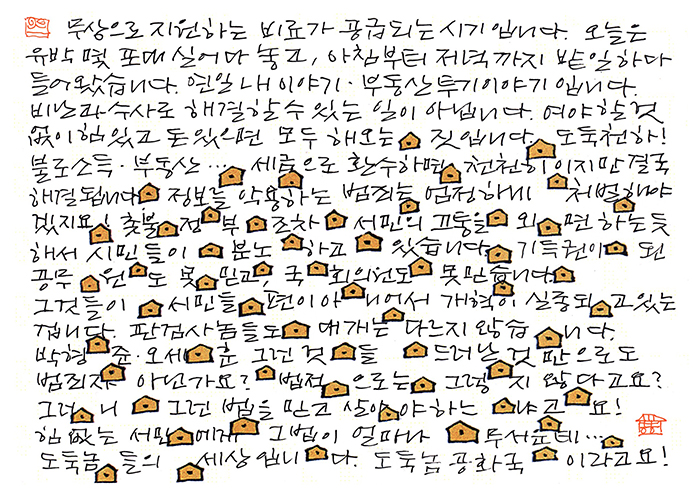 무상으로 지원하는 비료가 공급되는 시기입니다. 오늘은
유박 몇 포대 실어다 놓고, 아침부터 저녁까지 밭일하다
들어왔습니다. 연일 내 이야기·부동산투기이야기 입니다.
비난과 수사로 해결할 수 있는 일이 아닙니다. 여야 할 것
없이 힘있고 돈있으면 모두 해오는 짓입니다. 도둑천하!
불로소득·부동산… 세금으로 환수하면 천천히이지만 결국
해결됩니다 정보를 악용하는 범죄는 엄정하게 처벌해야
겠지요! 촛불 정부 조차 서민의 고통을 외면하는듯
해서 시민들이 분노하고 있습니다. 기득권이 된
공무원도 못믿고, 국회의원도 못믿습니다
그것들이 서민들 편이 아니어서 개혁이 실종되고있는
겁니다. 판검사놈들도 대개는 다르지 않습니다.
박형준·오세훈 그런 것들 드러날 것 만으로도
범죄자 아닌가요? 법적으로는 그렇지 않다고요?
그러니 그런 법을 믿고 살아야하는 냐고요!
힘없는 서민에게 그법이 얼마나 무서운데…
도둑놈들의 세상입니다. 도둑놈 공화국 이라고요!